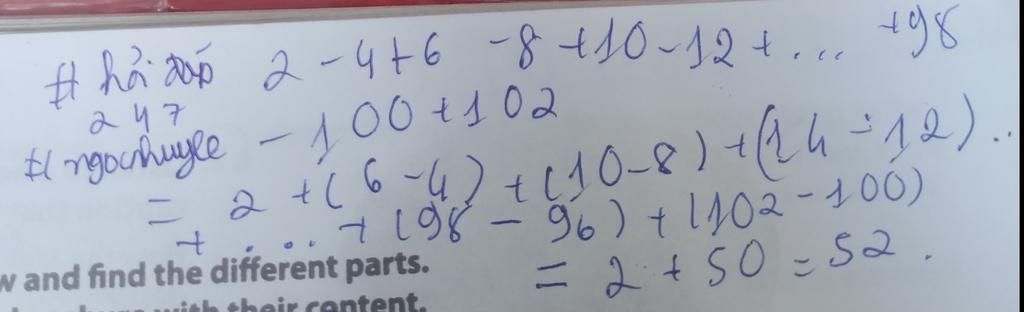 # hỏi đáp 2 - 4 + 6 - 8 + 10 - 12 + ... + 98
247
# ngocnhuyee - 100 + 102
= 2 + (6 - 4) + (10 - 8) + (14 - 12) ..
+ .... + (98 - 96) + (102 - 100)
= 2 + 50 = 52 .
w and find the different parts.
with their content.